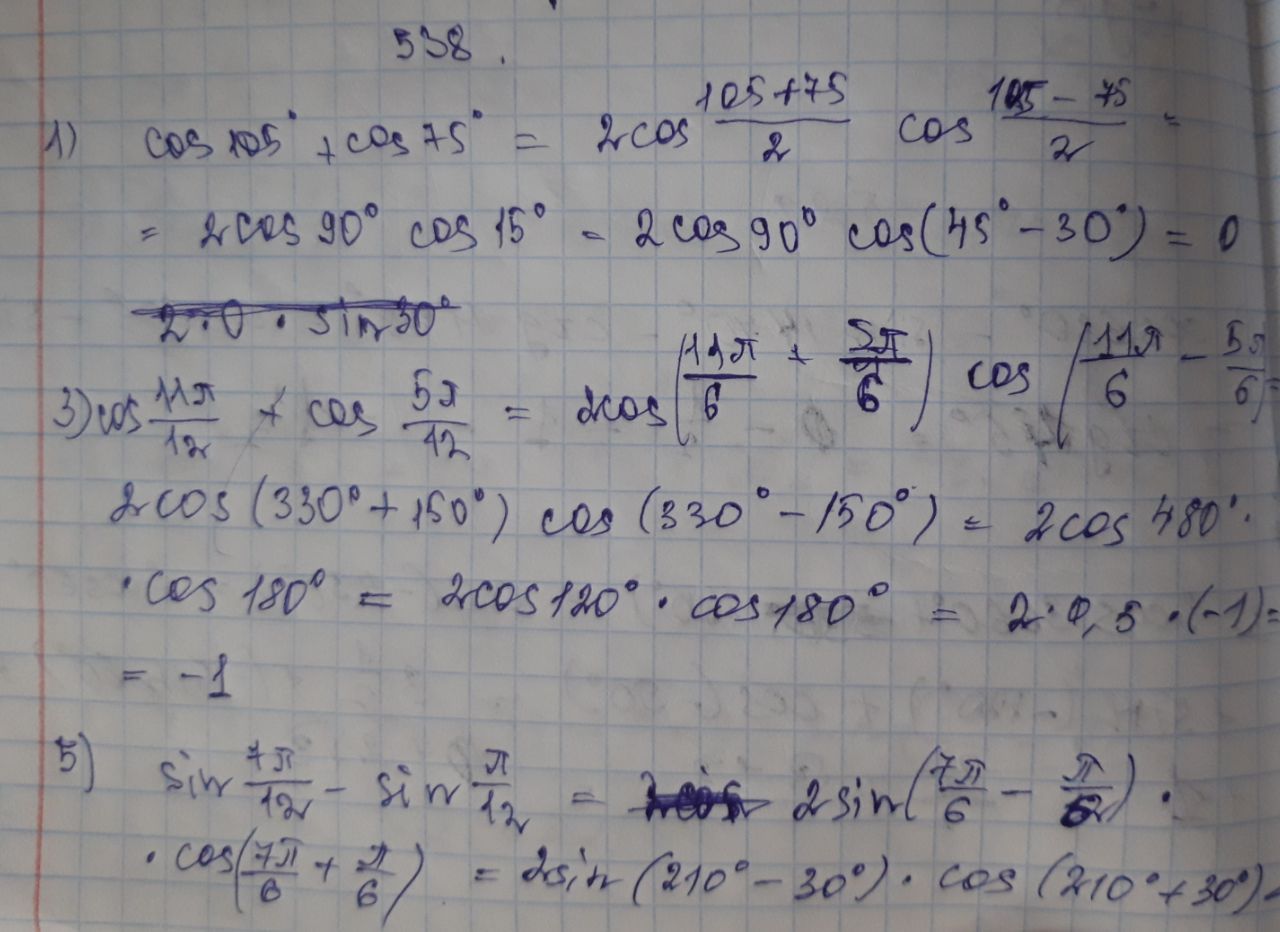 538.
1) cos 105° + cos 75° = 2cos (105+75)/2 cos (105 - 75)/2 =
= 2cos 90° cos 15° = 2cos 90° cos(45° - 30°) = 0
2 · 0 · sin 30°
3) cos 11π/12 + cos 5π/12 = 2cos(11π/6 + 5π/6) cos(11π/6 - 5π/6) =
2cos(330° + 150°) cos(330° - 150°) = 2cos 480° ·
· cos 180° = 2cos 120° · cos 180° = 2 · 0,5 · (-1) =
= -1
5) sin 7π/12 - sin π/12 = 2sin(7π/6 - π/6) ·
· cos(7π/6 + π/6) = 2sin(210° - 30°) · cos(210° + 30°) =